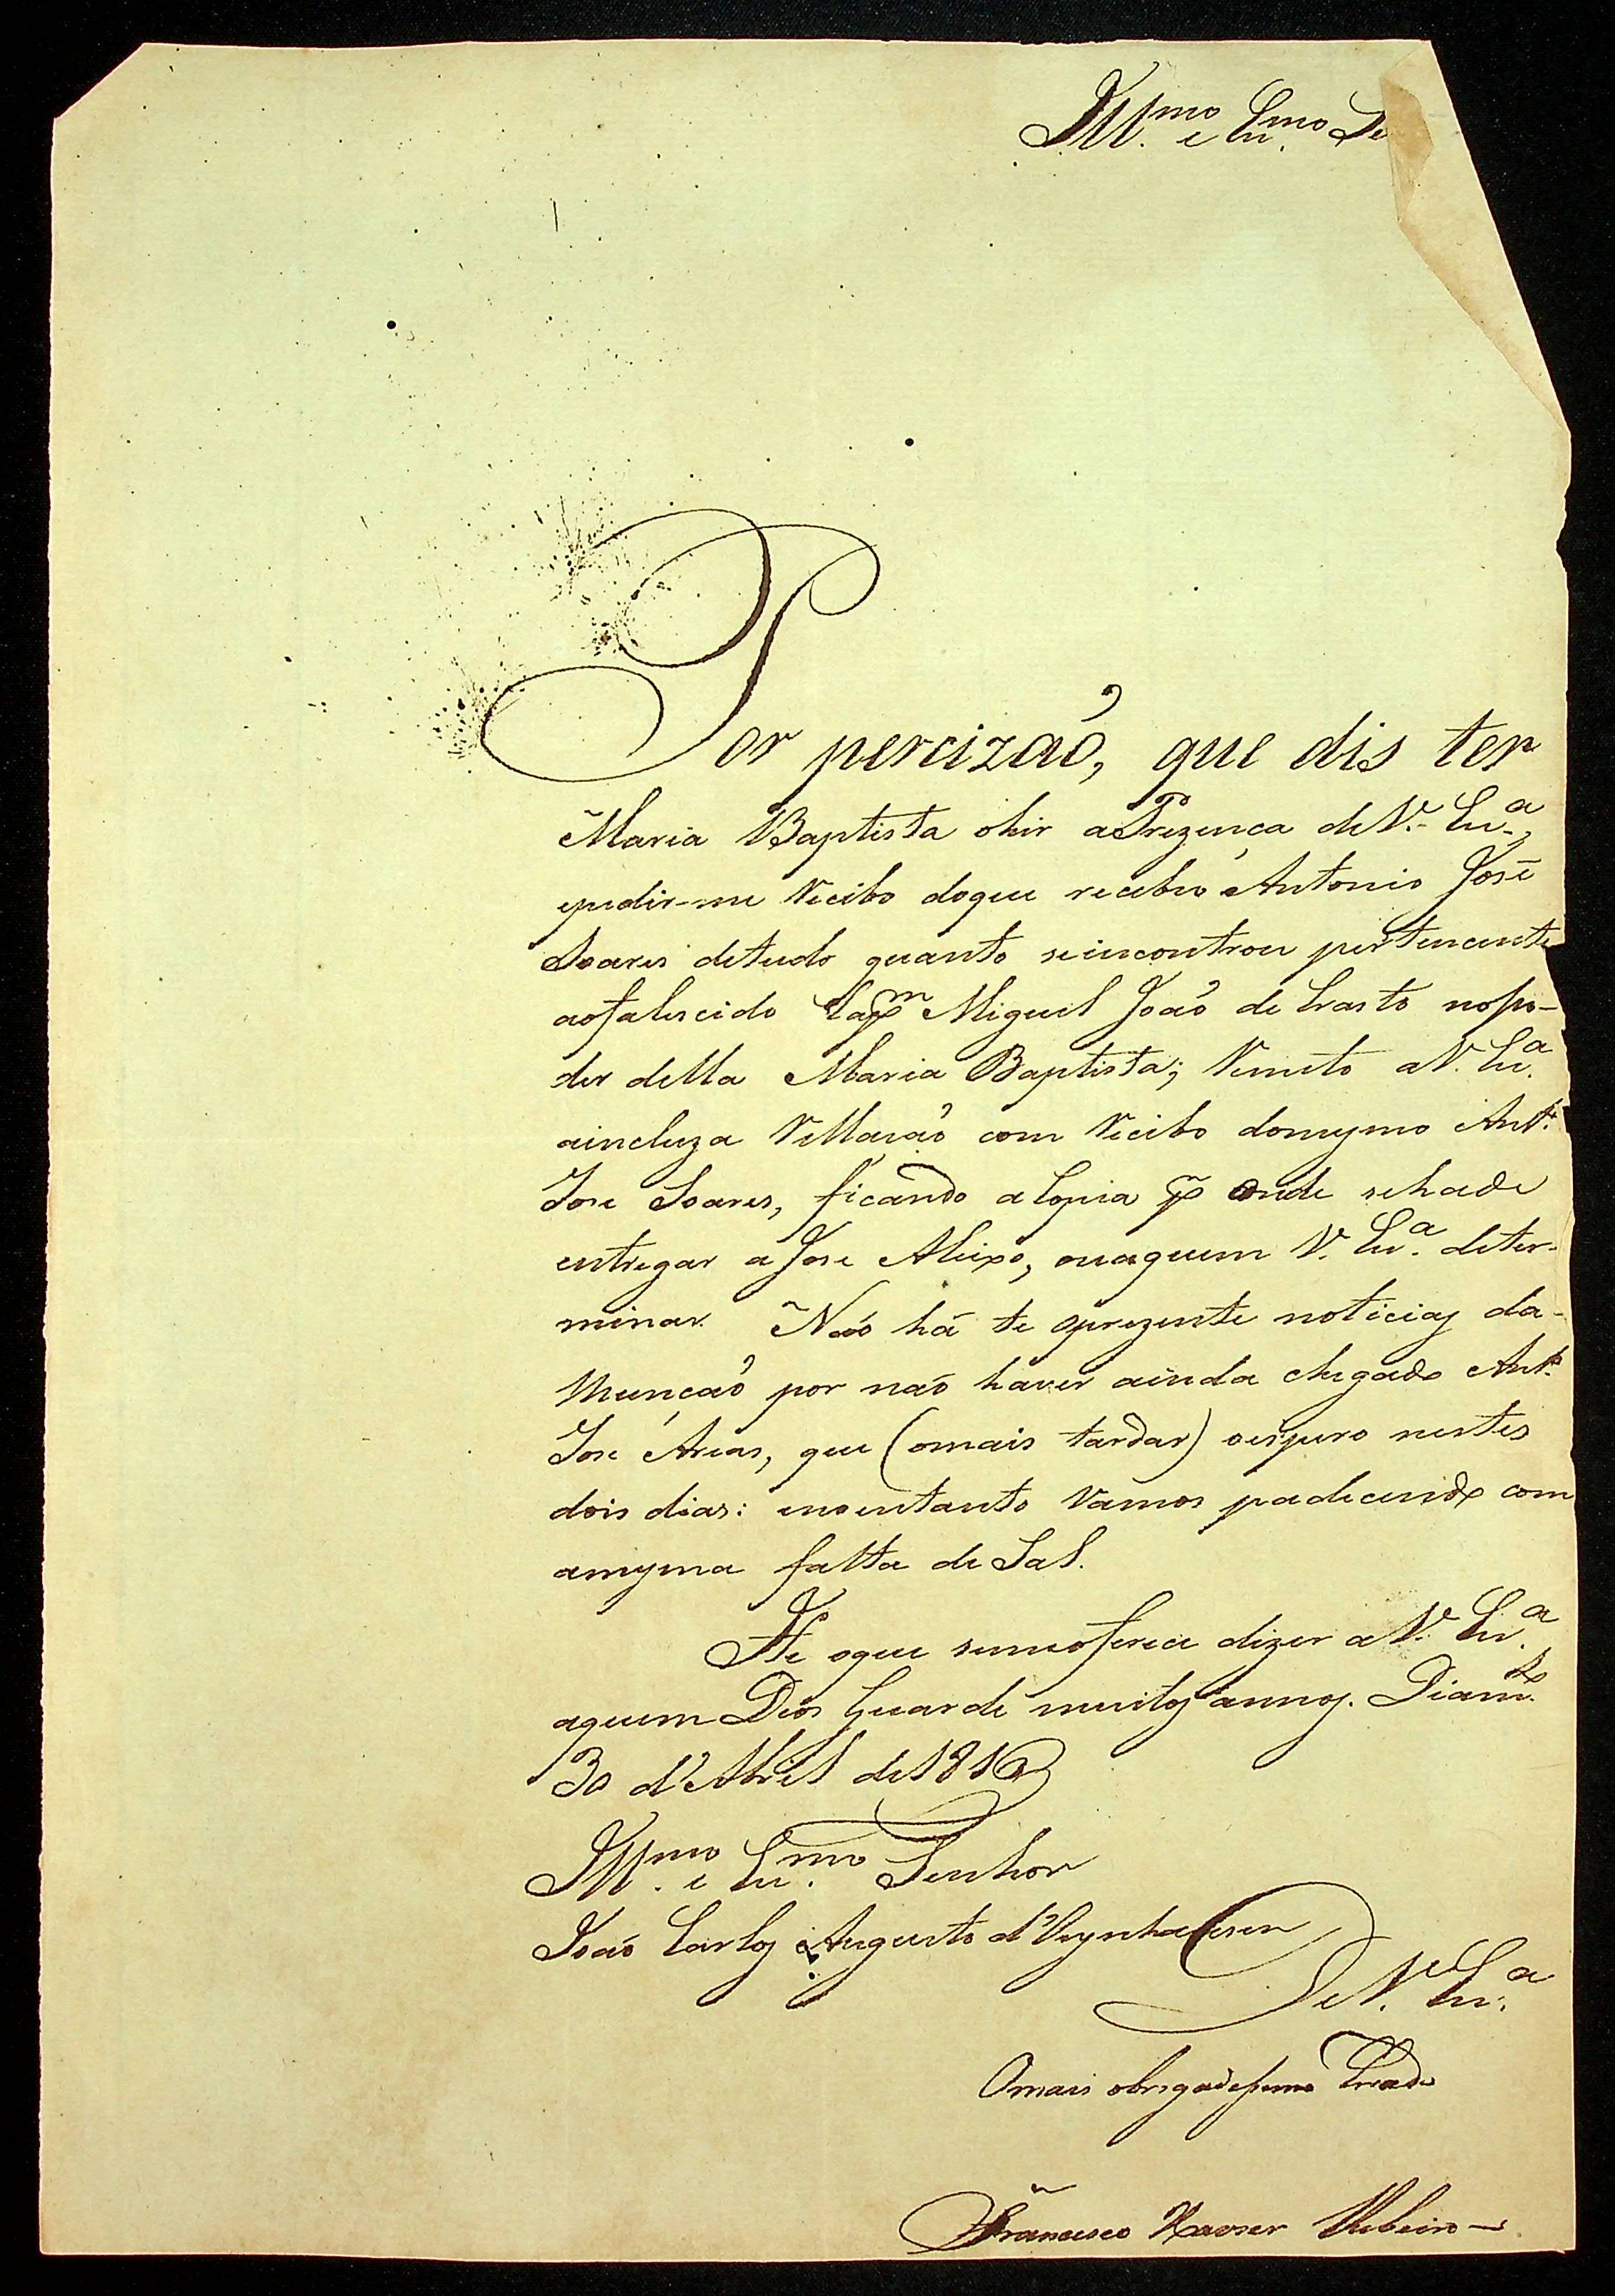 Ill.mo e Ex.mo Se
Por percizaõ, que dis ter
Maria Baptista ohir aPrezença deV. Ex.a,
epedir-me Recibo doque recebeo Antonio José
Soares detudo quanto seincontrou pertencente
aofalescido Capm Miguel Joaõ de Crasto nopo-
der della Maria Baptista; Remeto aV. Ex.a
aincluza Rellaçaõ com Recibo domesmo Ant.o
Jose Soares, ficando a Copia p onde sehade
entregar a Jose Aleixo, ouaquem V. Ex.a deter-
minar. Naõ há te oprezente noticias da
Munçaõ por naõ haver ainda chegado Ant.o
Jose Arias, que (omais tardar) oespero nestes
dois dias: enoentanto Vamos padecendo com
amesma falta de Sal.
He oque semeoferece dizer aV. Ex.a
aquem Deos Guarde muitos annos. Diam.no
30 d'Abril de1816
Ill.mo e Ex.mo Senhor
Joaõ Carlos Augusto d'Oeynhausen
DeV. Ex.a
Omais obrigadessimo Criado
Francisco Xavier Ribeiro